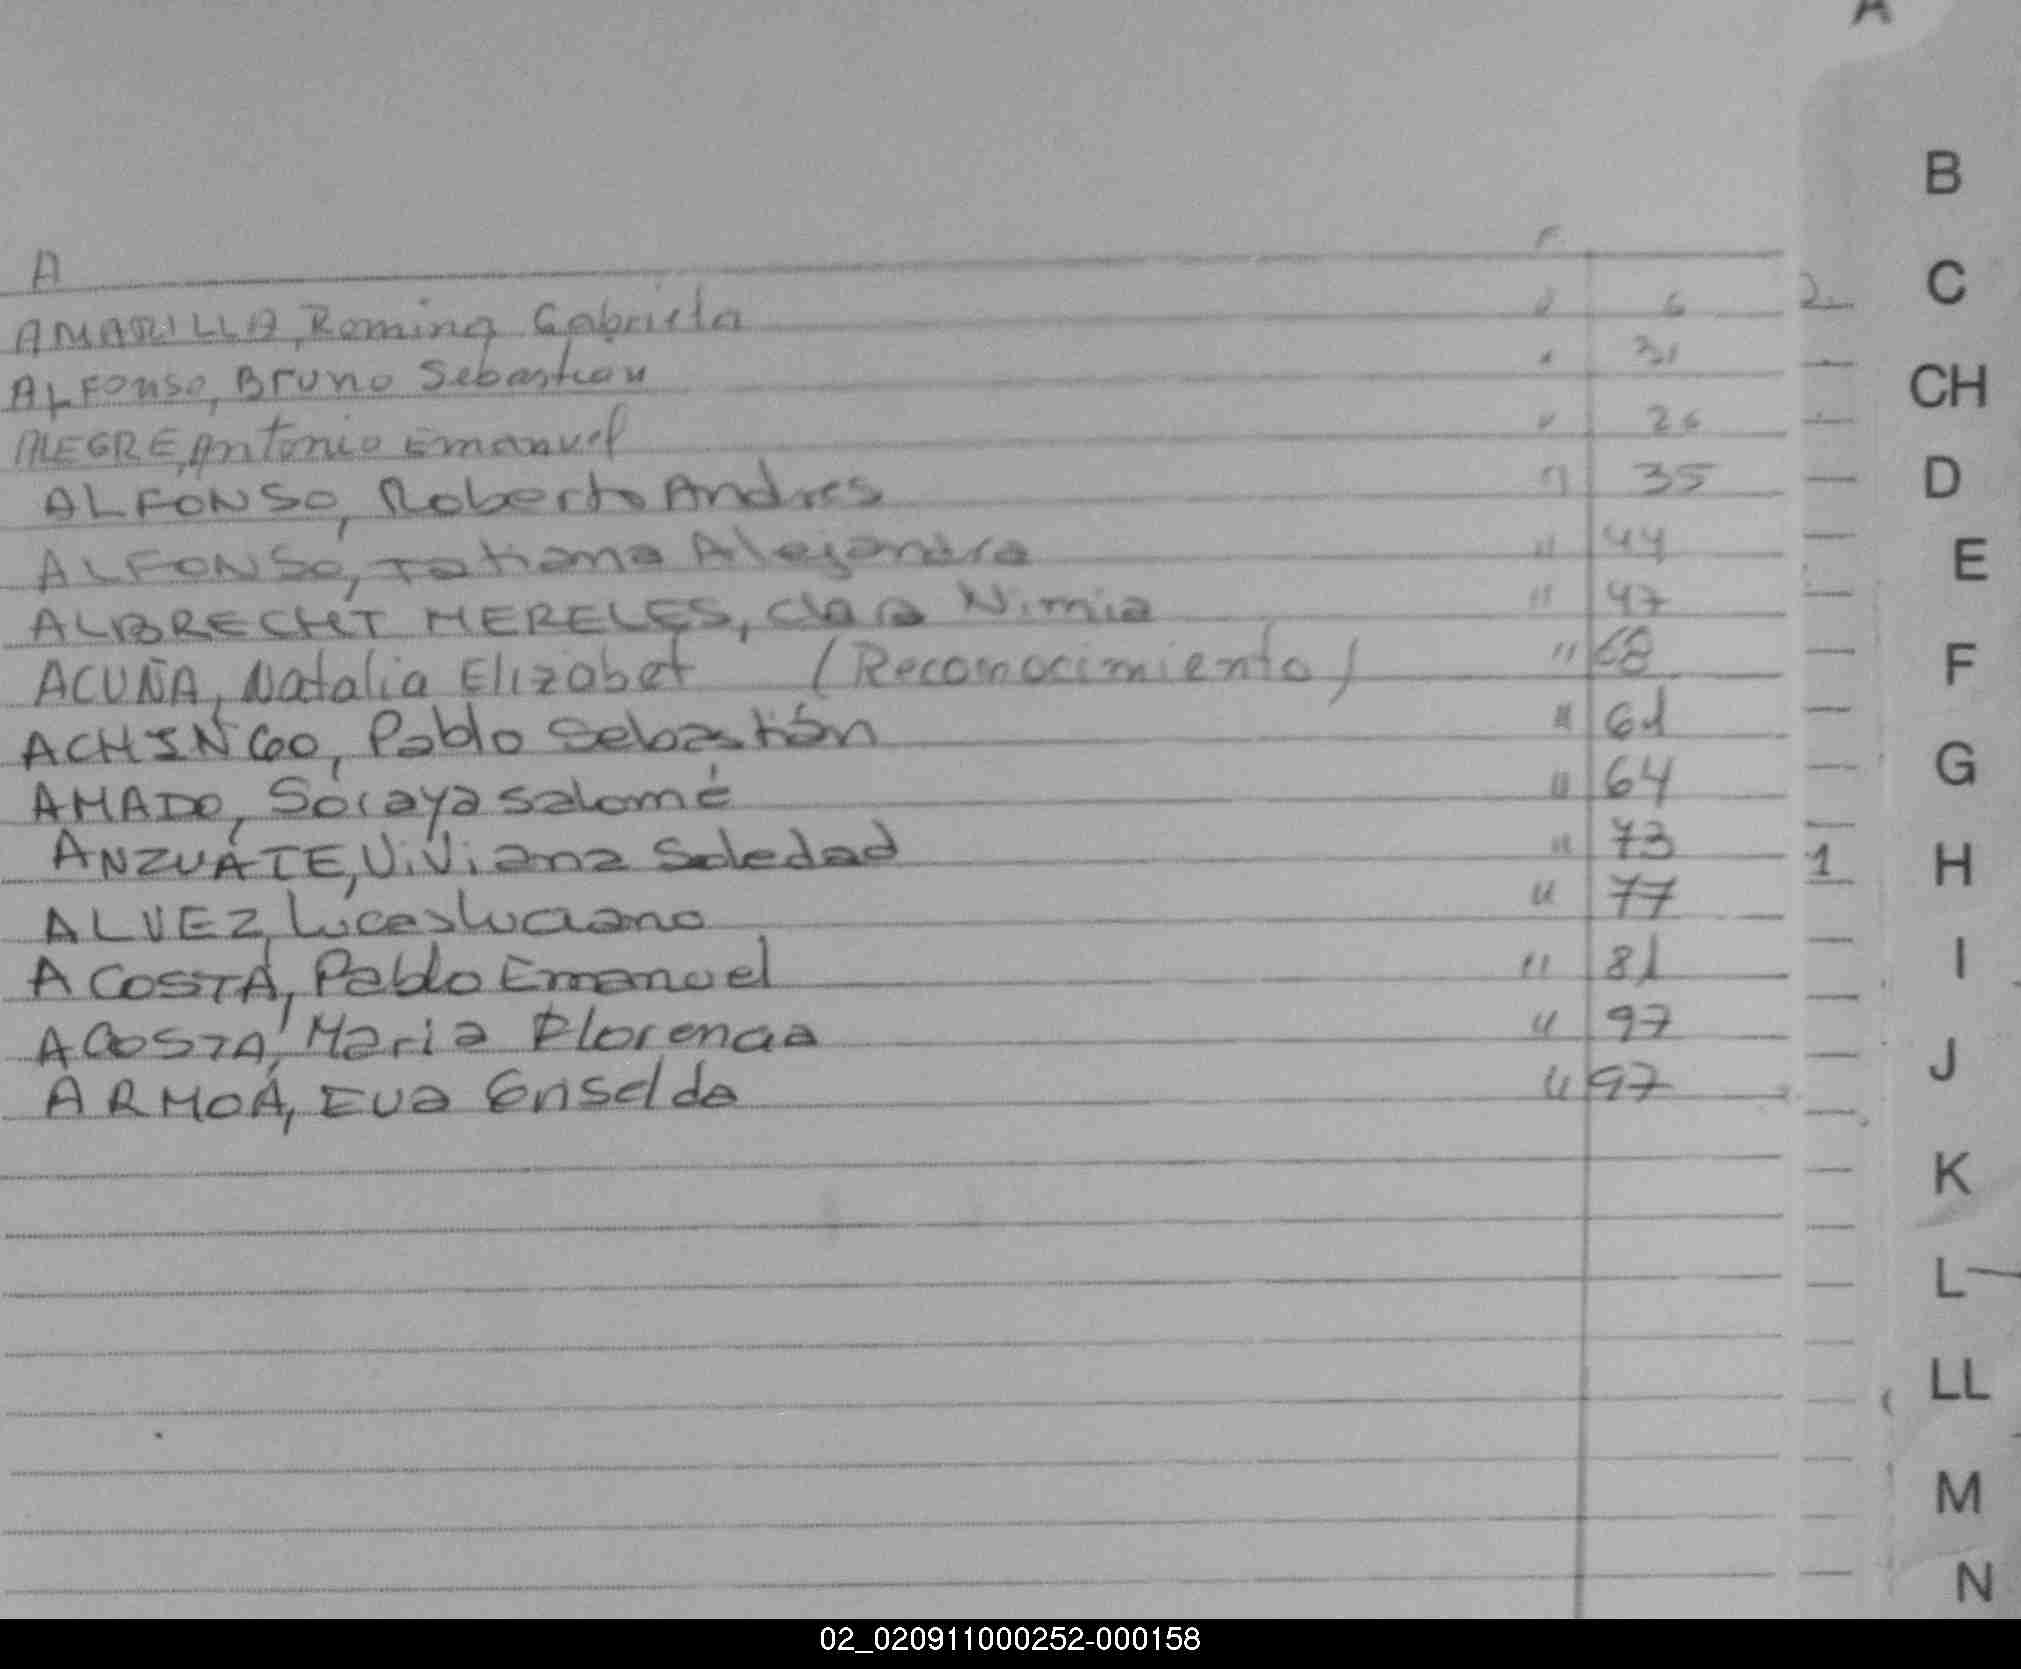 A
B
C
CH
D
E
F
G
H
I
J
K
L
LL
M
N
A F
AMARILLA, Romina Gabriela " 6 2
ALFONSO, Bruno Sebastian " 31
ALEGRE, Antonio Emanuel " 26
ALFONSO, Roberto Andres " 35
ALFONSO, Tatiana Alejandra " 44
ALBRECHT MERELES, Clara Nimia " 47
ACUÑA, Natalia Elizabet (Reconocimiento) " 68
ACHINGO, Pablo Sebastián " 61
AMADO, Soraya Salomé " 64
ANZUATE, Viviana Soledad " 73 1
ALVEZ, Lucas Luciano " 77
ACOSTA, Pablo Emanuel " 81
ACOSTA, Maria Florencia " 97
ARMOA, Eva Griselda " 97
02_020911000252-000158